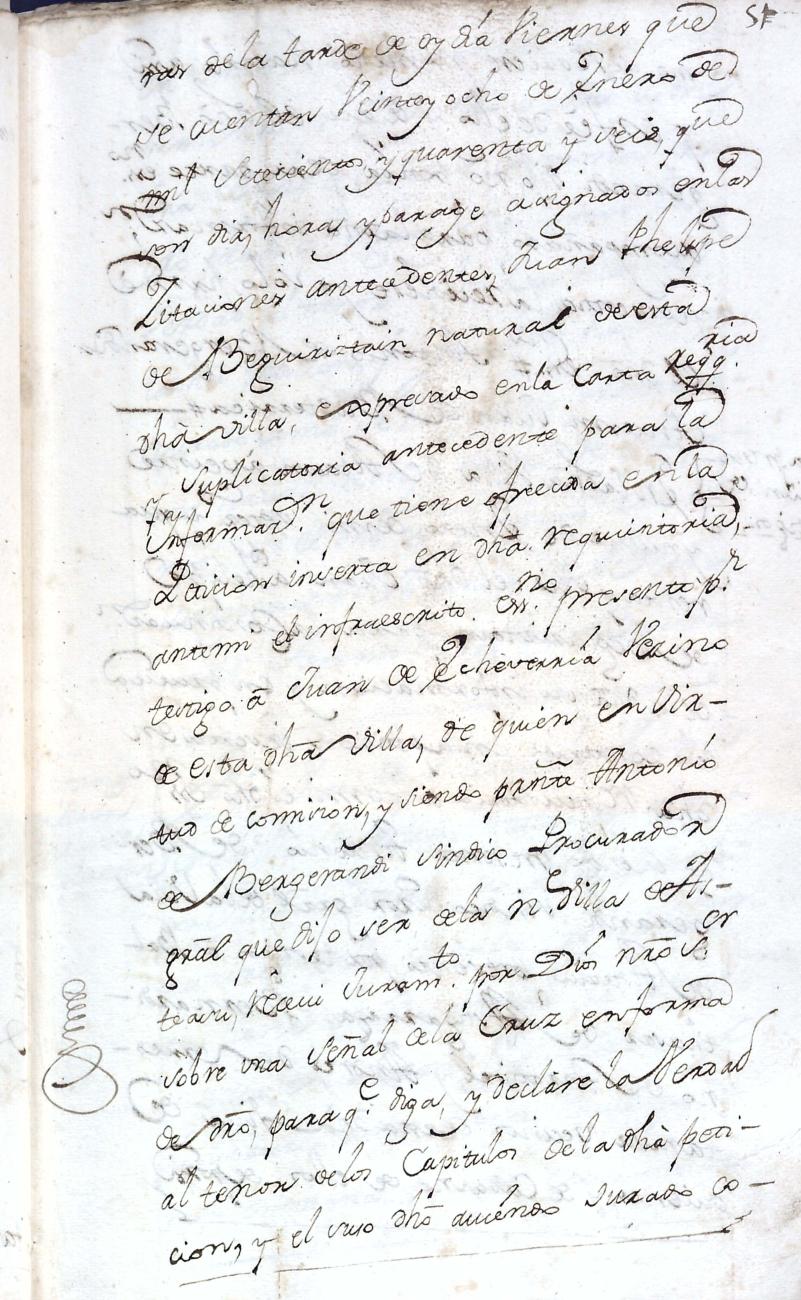 51
ras de la tarde de oy dia Viernes que
se cuentan Veinte y ocho de Enero de
mil Setecientos y quarenta y seis, que
son dia, hora y parage asignados en las
Zitaciones antecedentes, Juan Phelipe
de Beguiriztain natural de esta
dha villa, expresado en la Carta reqq.ria
y suplicatoria antecedente para la
Informaz.n que tiene ofrecida en la
Peticion inserta en dha requisitoria,
antemi el infraescrito ess.no presento p.r
testigo a Juan de Echeverria Vezino
de esta dha Villa, de quien en vir-
tud de comision, y siendo pnte Antonio
de Bergerandi Sindico Procurador
gral que dijo ser de la N. Villa de As-
teasu, Receui Juram.to por Dios nro S.or
sobre una señal de la Cruz en forma
de dro, para q.e diga, y declare la Verdad
al tenor de los Capitulos de la dha peti-
cion, y el suso dho auiendo Jurado co-